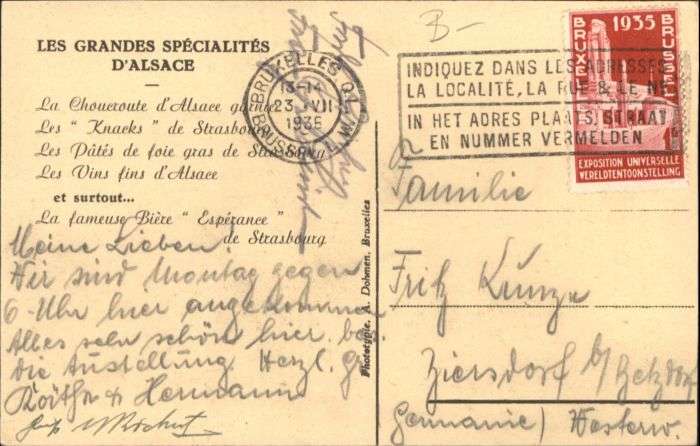 LES GRANDES SPÉCIALITÉS
D'ALSACE
La Choucroute d'Alsace garnie
Les " Knacks " de Strasbourg
Les Pâtés de foie gras de Strasbourg
Les Vins fins d'Alsace
et surtout...
La fameuse Bière " Espérance "
de Strasbourg
Meine Lieben!
Wir sind Montag gegen
6 Uhr hier angekommen
Alles sehr schön hier. 
die Austellung. Herzl. Gr.
Käthe & Hermann
BRUXELLES
13-14
23 VII
1935
BRUSSEL
INDIQUEZ DANS LES ADRESSES
LA LOCALITÉ, LA RUE & LE N°
IN HET ADRES PLAATS, STRAAT
EN NUMMER VERMELDEN
B-
1935
BRUXELLES
BRUSSEL
EXPOSITION UNIVERSELLE
WERELDTENTOONSTELLING
Phototypie, A. Dohmen, Bruxelles
Familie
Fritz Kunze
Ziersdorf b/ Betzdorf
Germanie) Westerw.